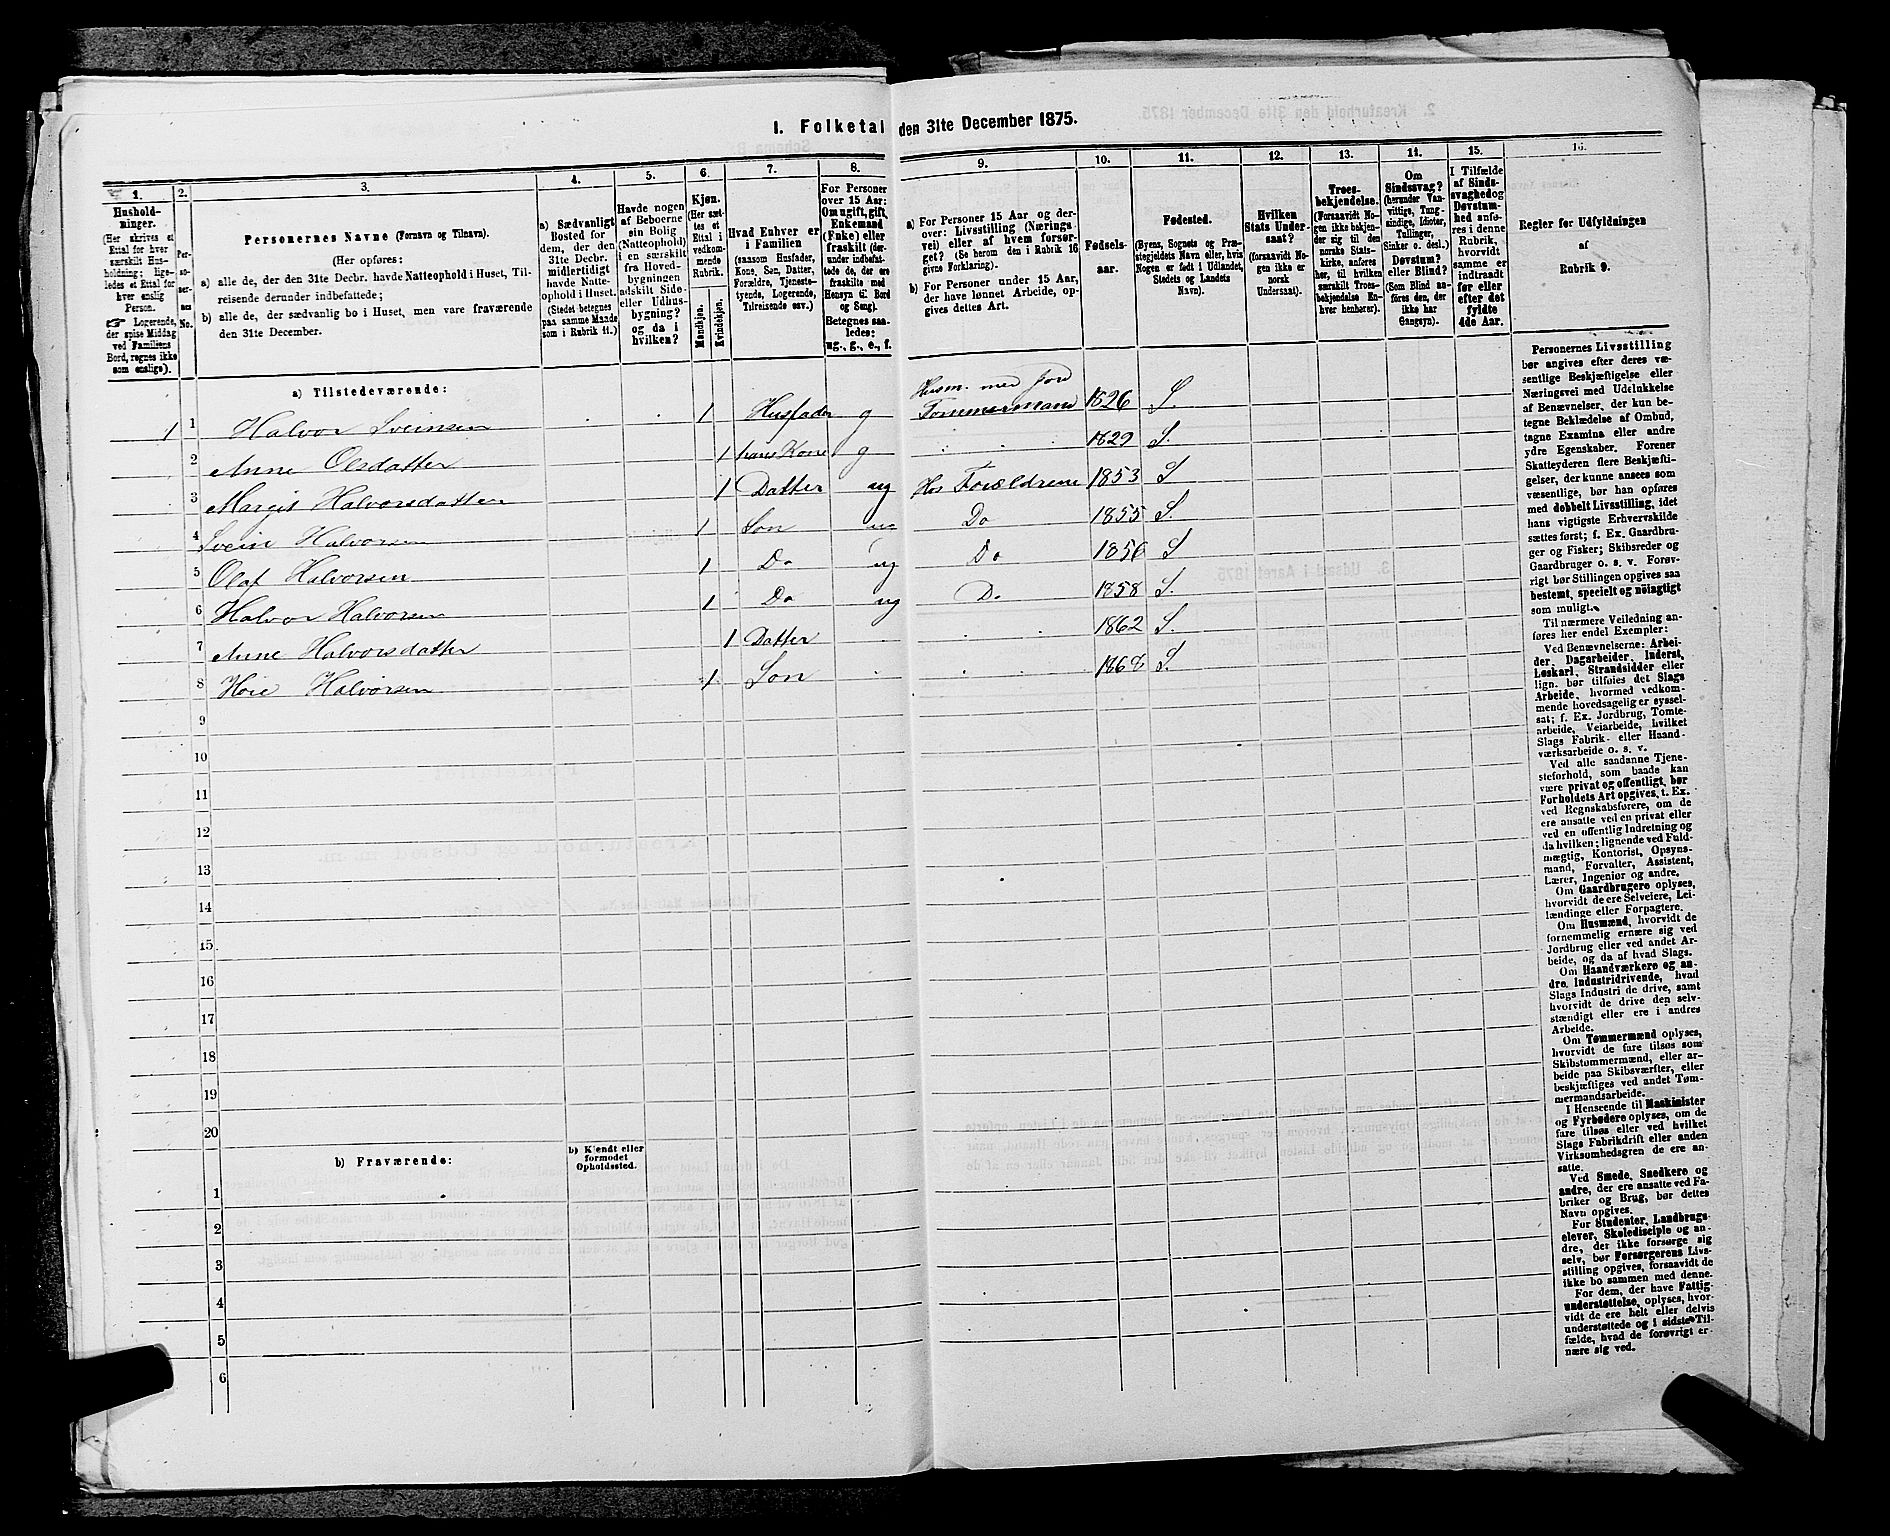 1. Folketal den 31te December 1875.
1. 2. 3. 4. 5. 6. 7. 8. 9. 10. 11. 12. 13. 14. 15. 16.
Hushold-
ninger.
(Her skrives et
Ettal for hver
særskilt Hus-
holdning; lige-
ledes et Ettal for
hver enslig
Person.
☞ Logerende,
der spise Middag
ved Familiens
Bord, regnes ikke
som enslige).
Per-
so-
ner-
nes
No.
Personernes Navne (Fornavn og Tilnavn).
(Her opføres:
a) alle de, der den 31te Decbr. havde Natteophold i Huset, Til-
reisende derunder indbefattede;
b) alle de, der sædvanlig bo i Huset, men vare fraværende
den 31te December.
a) Sædvanligt
Bosted for
dem, der den
31te Decbr.
midlertidigt
havde Natte-
ophold i Huset.
(Stedet betegnes
paa samme Maade
som i Rubrik 11.)
Havde nogen
af Beboerne
sin Bolig
(Natteophold)
i en særskilt
fra Hoved-
bygningen
adskilt Side-
eller Udhus-
bygning?
og da i
hvilken?
Kjøn.
(Her sæt-
tes et
Ettal i
vedkom-
mende
Rubrik.
Mandkjøn.
Kvindekjøn.
Hvad Enhver er
i Familien
(saasom Husfader,
Kone, Søn, Datter,
Forældre, Tjeneste-
tyende, Logerende,
Tilreisende osv.)
For Personer
over 15 Aar:
Om ugift, gift,
Enkemand
(Enke) eller
fraskilt (der-
under indbefat-
tede de, der ere
fraskilte med
Hensyn til Bord
og Seng).
Betegnes saa-
ledes:
ug., g., e., f.
a) For Personer 15 Aar og der-
over: Livsstilling (Nærings-
vei) eller af hvem forsør-
get? (Se herom den i Rubrik 16
givne Forklaring).
b) For Personer under 15 Aar,
der have lønnet Arbeide, op-
gives dettes Art.
Fødsels-
aar.
Fødested.
(Byens, Sognets og Præ-
stegjeldets Navn eller, hvis
Nogen er født i Udlandet,
Stedets og Landets
Navn).
Hvilken
Stats Under-
saat?
(forsaavidt No-
gen ikke er
norsk
Undersaat).
Troes-
bekjendelse.
(Forsaavidt No-
gen ikke bekjen-
der sig til den
norske Stats-
kirke, anføres
her, til hvilken
særskilt Troes-
bekjendelse En-
hver henhører).
Om
Sindssvag?
(herunder Van-
vittige, Tung-
sindige, Idioter,
Tullinger,
Sinker o. desl.)
Døvstum?
eller Blind?
(Som Blind an-
føres den, der
ikke har
Gangsyn).
I Tilfælde
af Sinds-
svaghed og
Døvstum-
hed anfø-
res i denne
Rubrik,
hvorvidt
samme er
indtraadt
før eller
efter det
fyldte
4de Aar.
Regler for Udfyldningen
af
Rubrik 9.
a) Tilstedeværende:
1 1 Halvor Sveinsen 1 Husfader g Husm. med Jord Tømmermand 1826 S.
2 Anne Olsdatter 1 hans Kone g 1829 S.
3 Margit Halvorsdatter 1 Datter ug Hos Forældrene 1853 S
4 Svein Halvorsen 1 Søn ug Do 1855 S.
5 Olaf Halvorsen 1 Do ug Do 1856 S
6 Halvor Halvorsen 1 Do ug Do 1858 S.
7 Anne Halvorsdatter 1 Datter 1862 S.
8 Halvorsen 1 Søn 1868 S.
9
10
11
12
13
14
15
16
17
18
19
20
b) Fraværende:
b) Kjendt eller
formodet
Opholdssted.
1
2
3
4
5
6
Personernes Livsstilling
bør angives efter deres væ-
sentlige Beskjæftigelse eller
Næringsvei med Udelukkelse
af Benævnelser, der kun be-
tegne Beklædelse af Ombud,
tagne Examina eller andre
ydre Egenskaber. Forener
Skatteyderen flere Beskjæfti-
gelser, der kunne ansees som
væsentlige, bør han opføres
med dobbelt Livsstilling, idet
hans vigtigste Erhvervskilde
sættes først; f. Ex. Gaardbru-
ger og Fisker; Skibsreder og
Gaardbruger o. s. v. Forøv-
rigt bør Stillingen opgives saa
bestemt, specielt og nøiagtigt
som muligt.
Til nærmere Veiledning an-
føres her endel Exempler:
Ved Benævnelserne: Arbei-
der, Dagarbeider, Inderst,
Løskarl, Strandsidder eller
lign. bør tilføies det Slags
Arbeide, hvormed vedkom-
mende hovedsagelig er syssel-
sat; f. Ex. Jordbrug, Tomte-
arbeide, Veiarbeide, hvilket
Slags Fabrik- eller Haand-
værksarbeide o. s. v.
Ved alle saadanne Tjene-
steforhold, som baade kan
være privat og offentligt, bør
Forholdets Art opgives, t. Ex.
ved Regnskabsførere, om de
ere ansatte ved en privat eller
ved en offentlig Indretning og
da hvilken; lignende ved Fuld-
mægtig, Kontorist, Opsyns-
mand, Forvalter, Assistent,
Lærer, Ingeniør og andre.
Om Gaardbrugere oplyses,
hvorvidt de ere Selveiere, Lei-
lændinge eller Forpagtere.
Om Husmænd, hvorvidt de
fornemmelig ernære sig ved
Jordbrug eller ved andet Ar-
beide, og da af hvad Slags.
Om Haandværkere og an-
dre, Industridrivende, hvad
Slags Industri de drive, samt
hvorvidt de drive den selv-
stændigt eller ere i andres
Arbeide.
Om Tømmermænd oplyses,
hvorvidt de fare tilsøs som
Skibstømmermænd, eller ar-
beide paa Skibsværfter, eller
beskjæftiges ved andet Tøm-
mermandsarbeide.
I Henseende til Maskinister
og Fyrbødere oplyses, om de
fare tilsøs eller ved hvilket
Slags Fabrikdrift eller anden
Virksomhedsgren de ere an-
satte.
Ved Smede, Snedkere og
andre, der ere ansatte ved Fa-
briker og Brug, bør dettes
Navn opgives.
For Studenter, Landbrugs-
elever, Skoledisciple og an-
dre, der ikke forsørge sig
selv, bør Forsørgerens Livs-
stilling opgives, forsaavidt de
ikke bo sammen med denne.
For dem, der have Fattig-
understøttelse, oplyses, hvor-
vidt de ere helt eller delvis
understøttede og i sidste Til-
fælde, hvad de forøvrigt er-
nære sig ved.